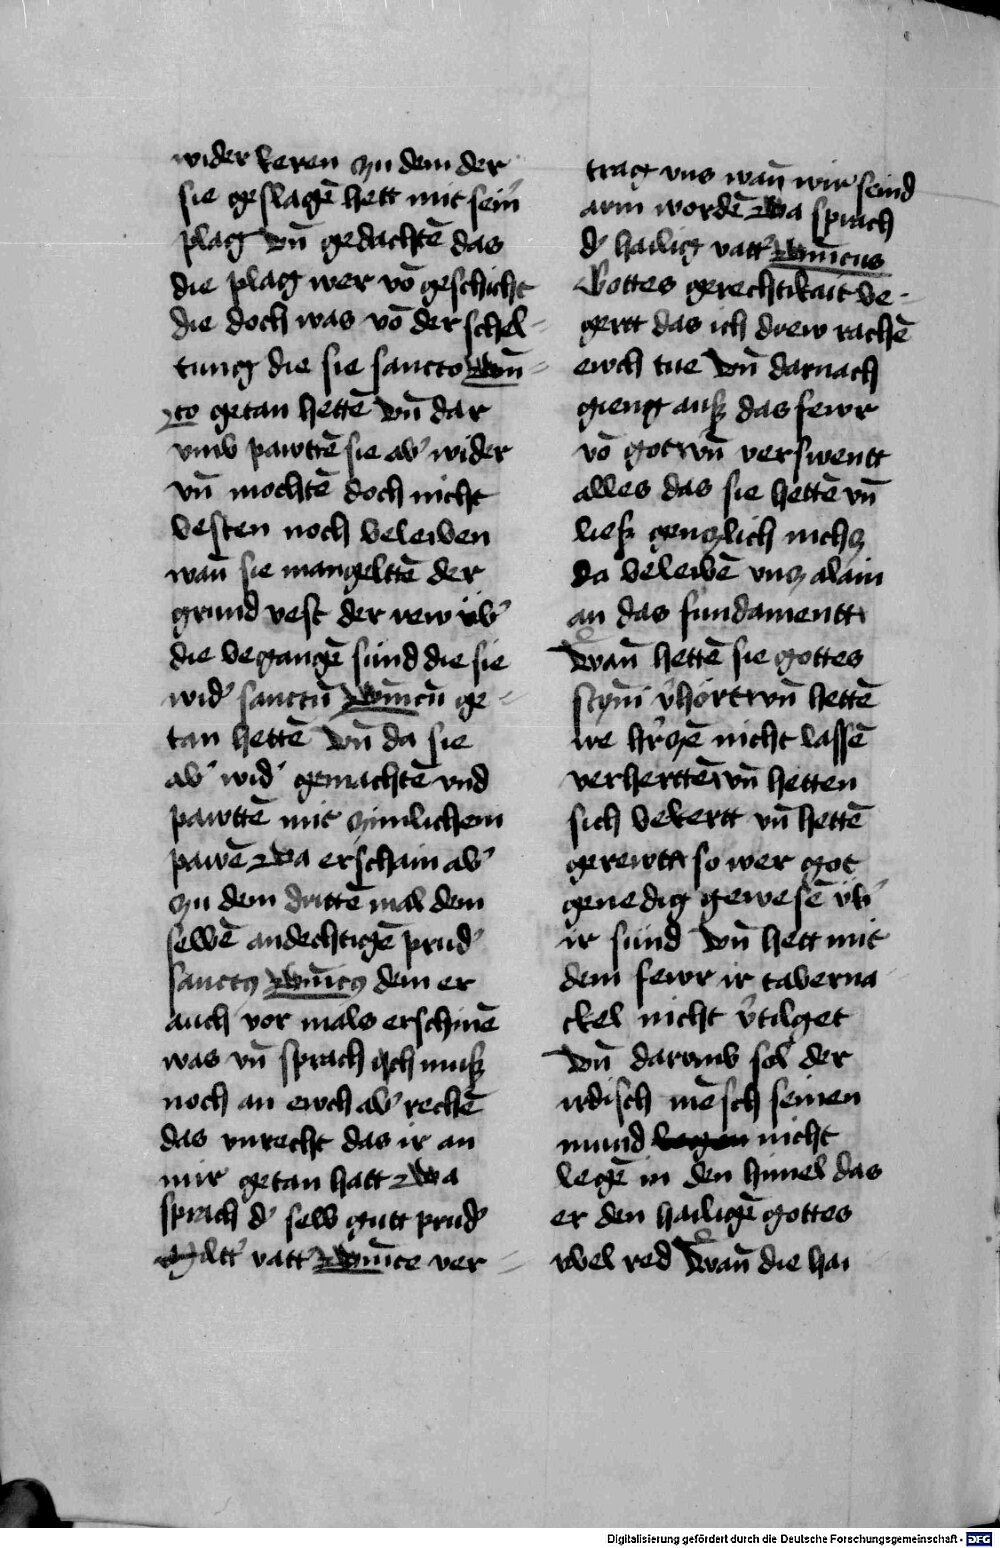 wider keren zu dem der
sie geslagē hett mit sein̄
plag vn̄ gedachtē das
die plag wer vō geschicht
die doch was vō der schel-
tung die sie sancto
to getan hettē vn̄ dar
vmb pawttē sie ab' wider
vn̄ mochtē doch nicht
besten noch beleiben
wan̄ sie mangeltē der
grund vest der rew üb'
die begangē sünd die sie
wid' sanctū ge-
tan hettē vn̄ da sie
ab' wid' gemachtē vnd
pawttē mit zimlichem
pawē Da erschain ab'
zu dem drittē mal dem
selbē andechtigē prud'
sanctus dem er
auch vor mals erschinē
was vn̄ sprach Ich muß
noch an ewch ab' rechē
das vnrecht das ir an
mir getan hatt Da
sprach d' selb gutt prud'
vatt' ver-
trag vns wan̄ wir seind
arm wordē Da sprach
d' hailig vatt'
Gottes gerechtikait be-
gertt das ich drew rachē
ewch tue vn̄ darnach
gieng auß das fewr
vō got vn̄ verswentt
alles das sie hettē vn̄
ließ genczlich nichcz
da beleibē vncz alain
an das fundamentt
Wan̄ hettē sie gottes
stym̄ v'hört vn̄ hettē
ire h'rczē nicht lassē
verherttē vn̄ hetten
sich bekertt vn̄ hettē
gerewtt so wer got
genedig gewesē üb'
ir sünd vn̄ hett mit
dem fewr ir taberna
ckel nicht v'tilget
vn̄ darumb sol der
irdisch mēsch seinen
mund nicht
legē in den himel das
er den hailigē gottes
übel red Wan̄ die hai
Digitalisierung gefördert durch die Deutsche Forschungsgemeinschaft - DFG